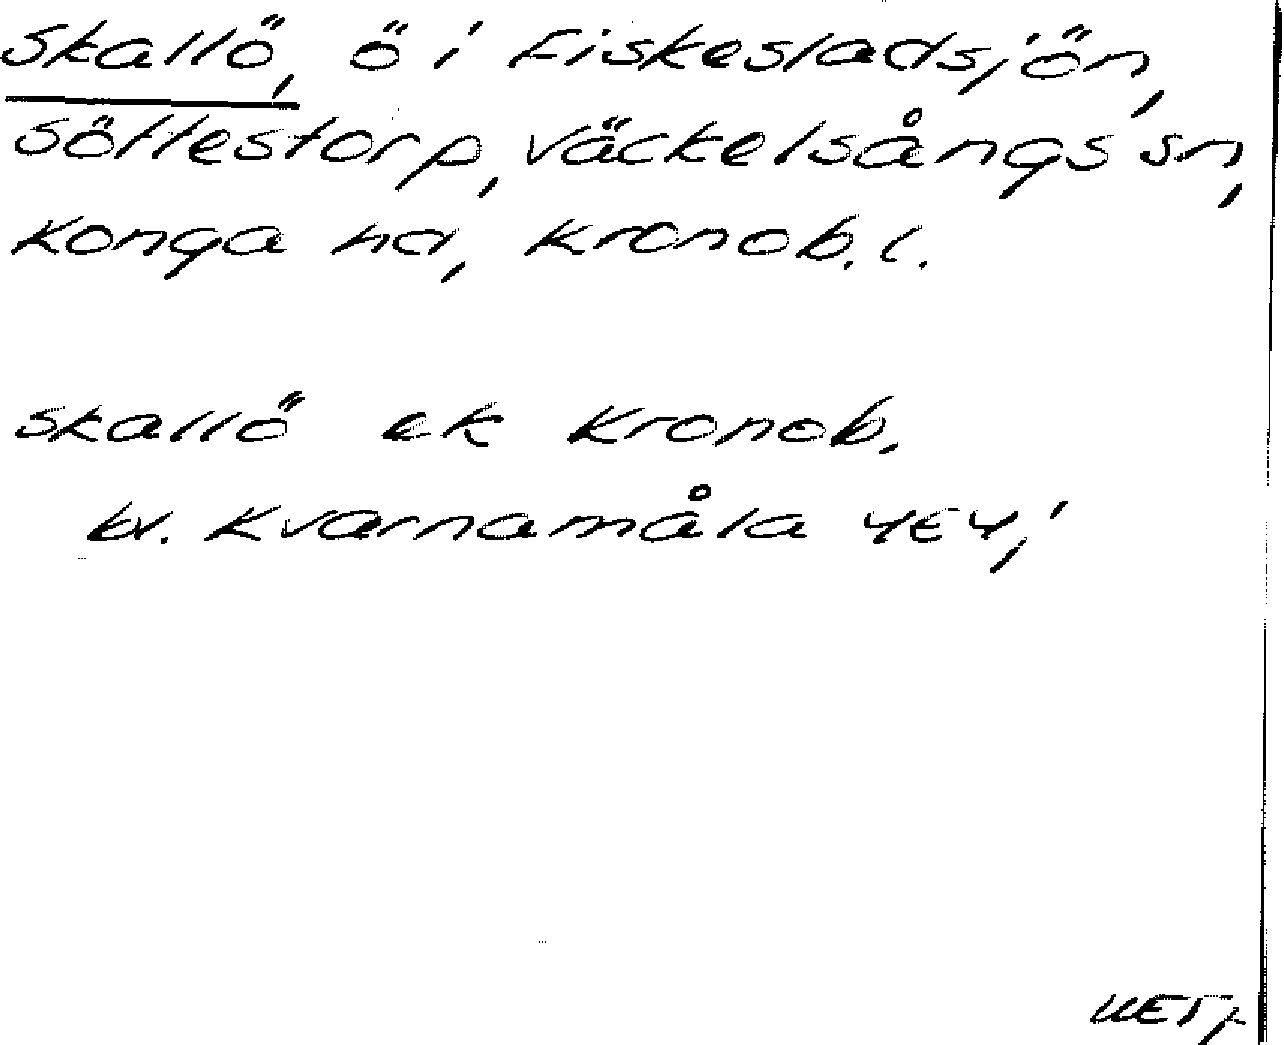 Skallö, ö i Fiskesladsjön,
Söftestorp, Väckelsångs sn,
Konga hd, Kronob. l.
Skallö ek Kronob.
bl. Kvarnamåla 4E4,